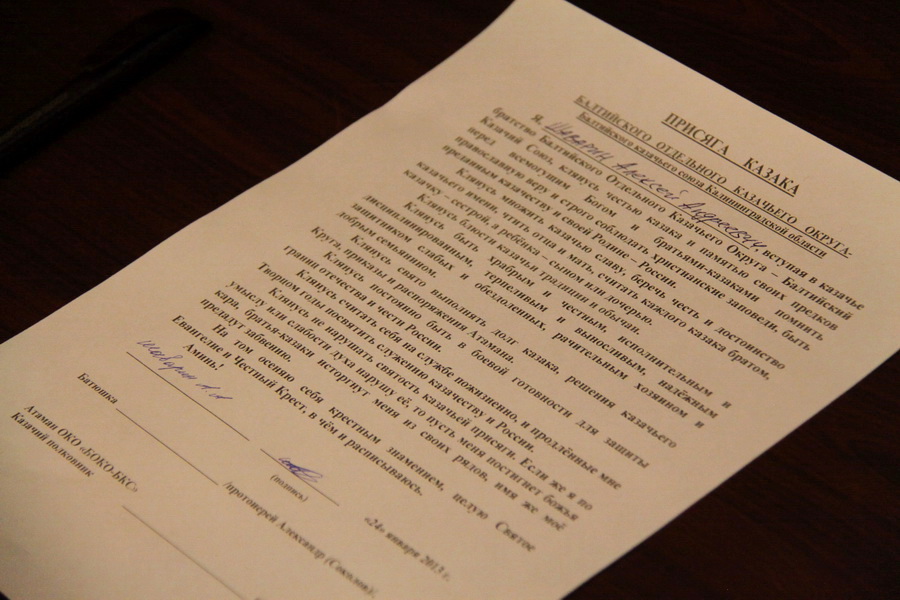 ПРИСЯГА КАЗАКА
БАЛТИЙСКОГО ОТДЕЛЬНОГО КАЗАЧЬЕГО ОКРУГА-
Балтийского казачьего союза Калининградской области
Я, Шаварин Алексей Андреевич, вступая в казачье
братство Балтийского Отдельного Казачьего Округа – Балтийский
Казачий Союз, клянусь честью казака и памятью своих предков
перед всемогущим Богом и братьями-казаками помнить
православную веру и строго соблюдать христианские заповеди, быть
преданным казачеству и своей Родине – России.
Клянусь множить казачью славу, беречь честь и достоинство
казачьего имени, чтить отца и мать, считать каждого казака братом,
казачку – сестрой, а ребёнка – сыном или дочерью.
Клянусь блюсти казачьи традиции и обычаи.
Клянусь быть храбрым и честным, исполнительным и
дисциплинированным, терпеливым и выносливым, надёжным
защитником слабых и обездоленных, рачительным хозяином и
добрым семьянином.
Клянусь свято выполнять долг казака, решения казачьего
Круга, приказы и распоряжения Атамана.
Клянусь постоянно быть в боевой готовности для защиты
границ отечества и чести России.
Клянусь считать себя на службе пожизненно, и продлённые мне
Творцом годы посвятить служению казачеству и России.
Клянусь не нарушать святость казачьей присяги. Если же я по
умыслу или слабости духа нарушу её, то пусть меня постигнет божья
кара, братья-казаки исторгнут меня из своих рядов, имя же моё
предадут забвению.
На том осеняю себя крестным знамением, целую Святое
Евангелие и Честный Крест, в чём и расписываюсь.
Аминь!
Шаварин А А
(подпись)
«24» января 2013 г.
Батюшка /протоиерей Александр (Соколов)/
Атаман ОКО «БОКО-БКС»
Казачий полковник